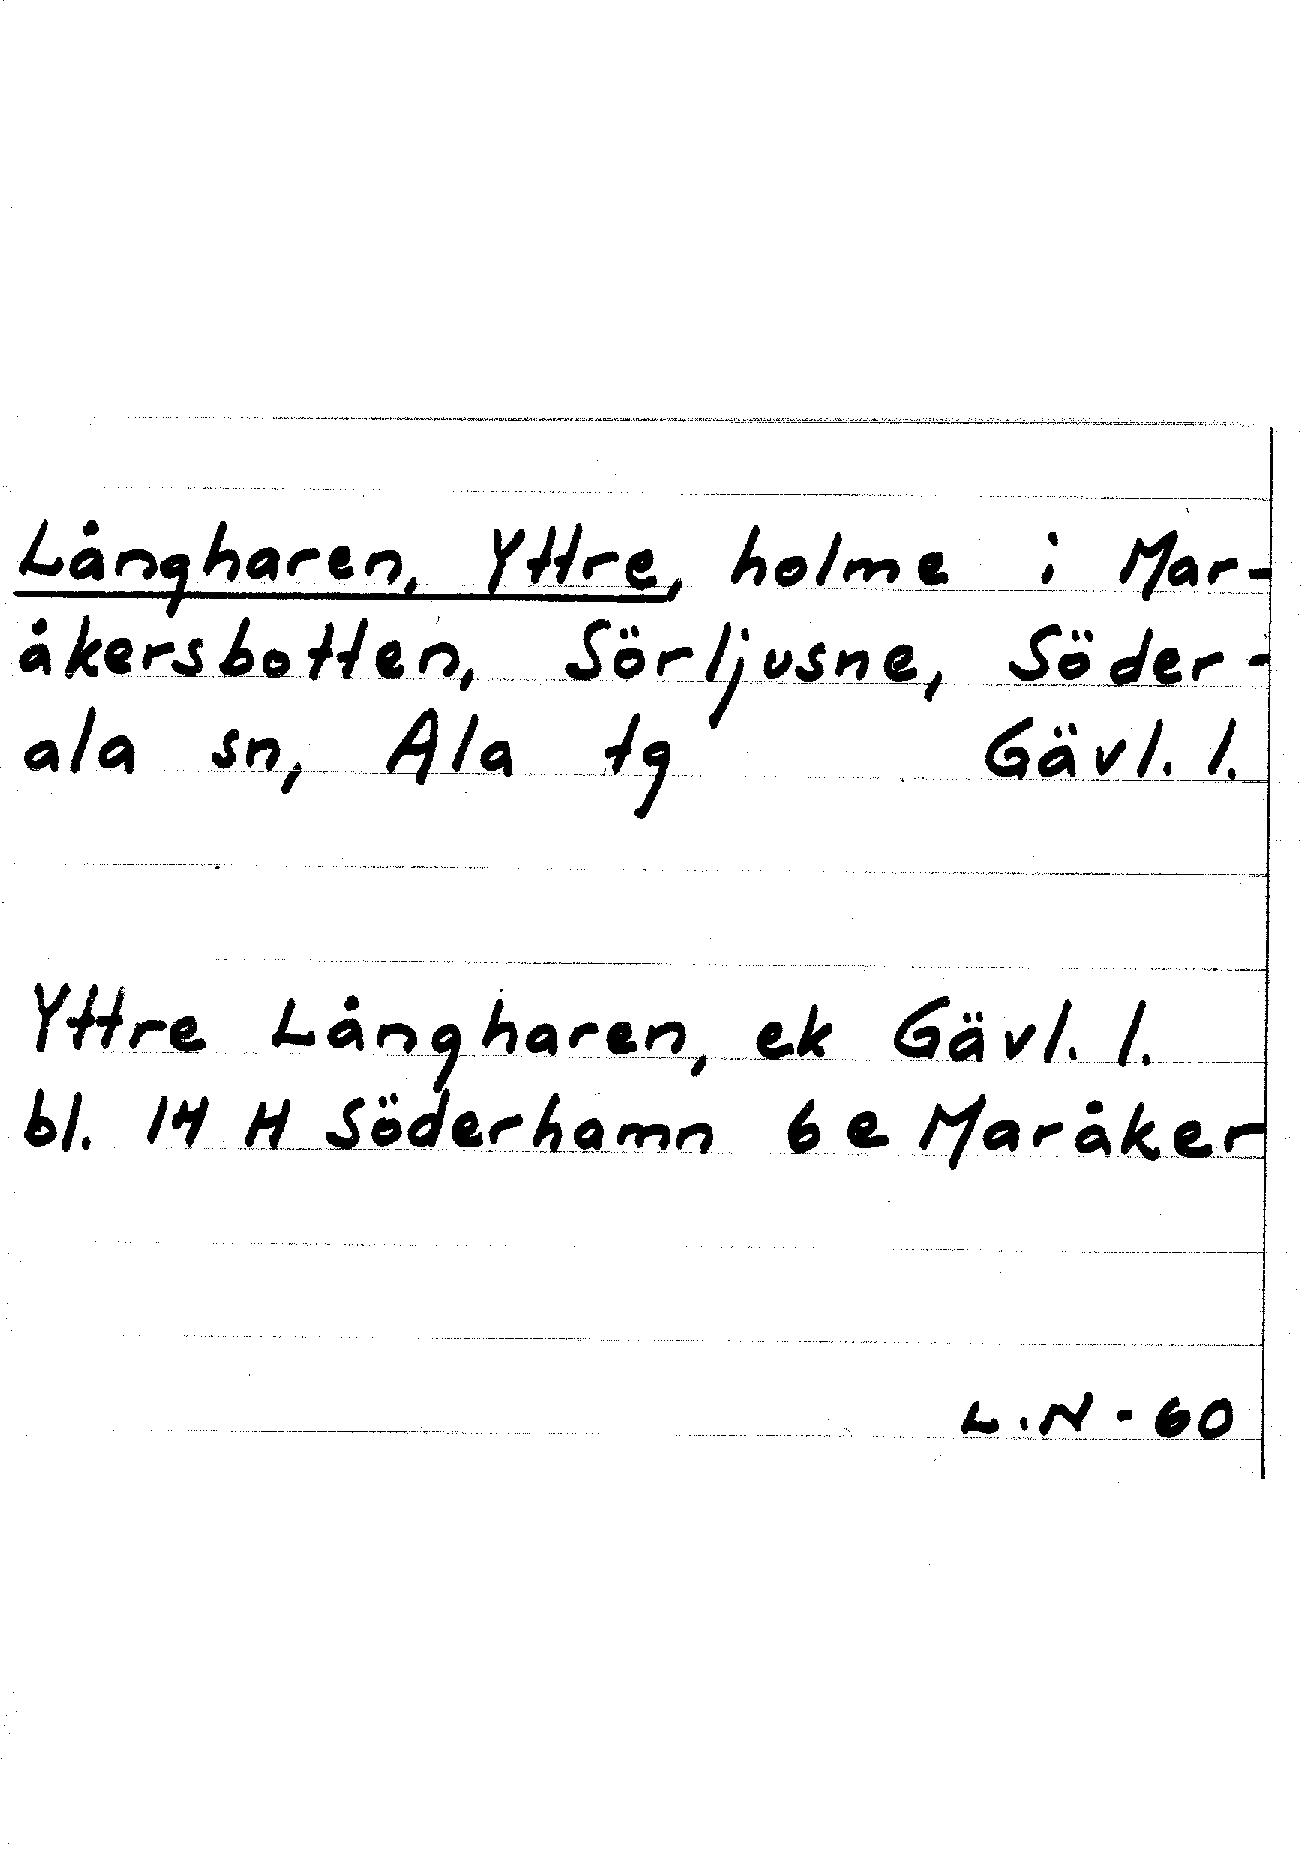 Långharen, Yttre, holme i Mar-
åkersbotten, Sörljusne, Söder-
ala sn, Ala tg Gävl. l.
Yttre Långharen, ek Gävl. l.
bl. 14 H Söderhamn 6 e Maråker
L.N - 60